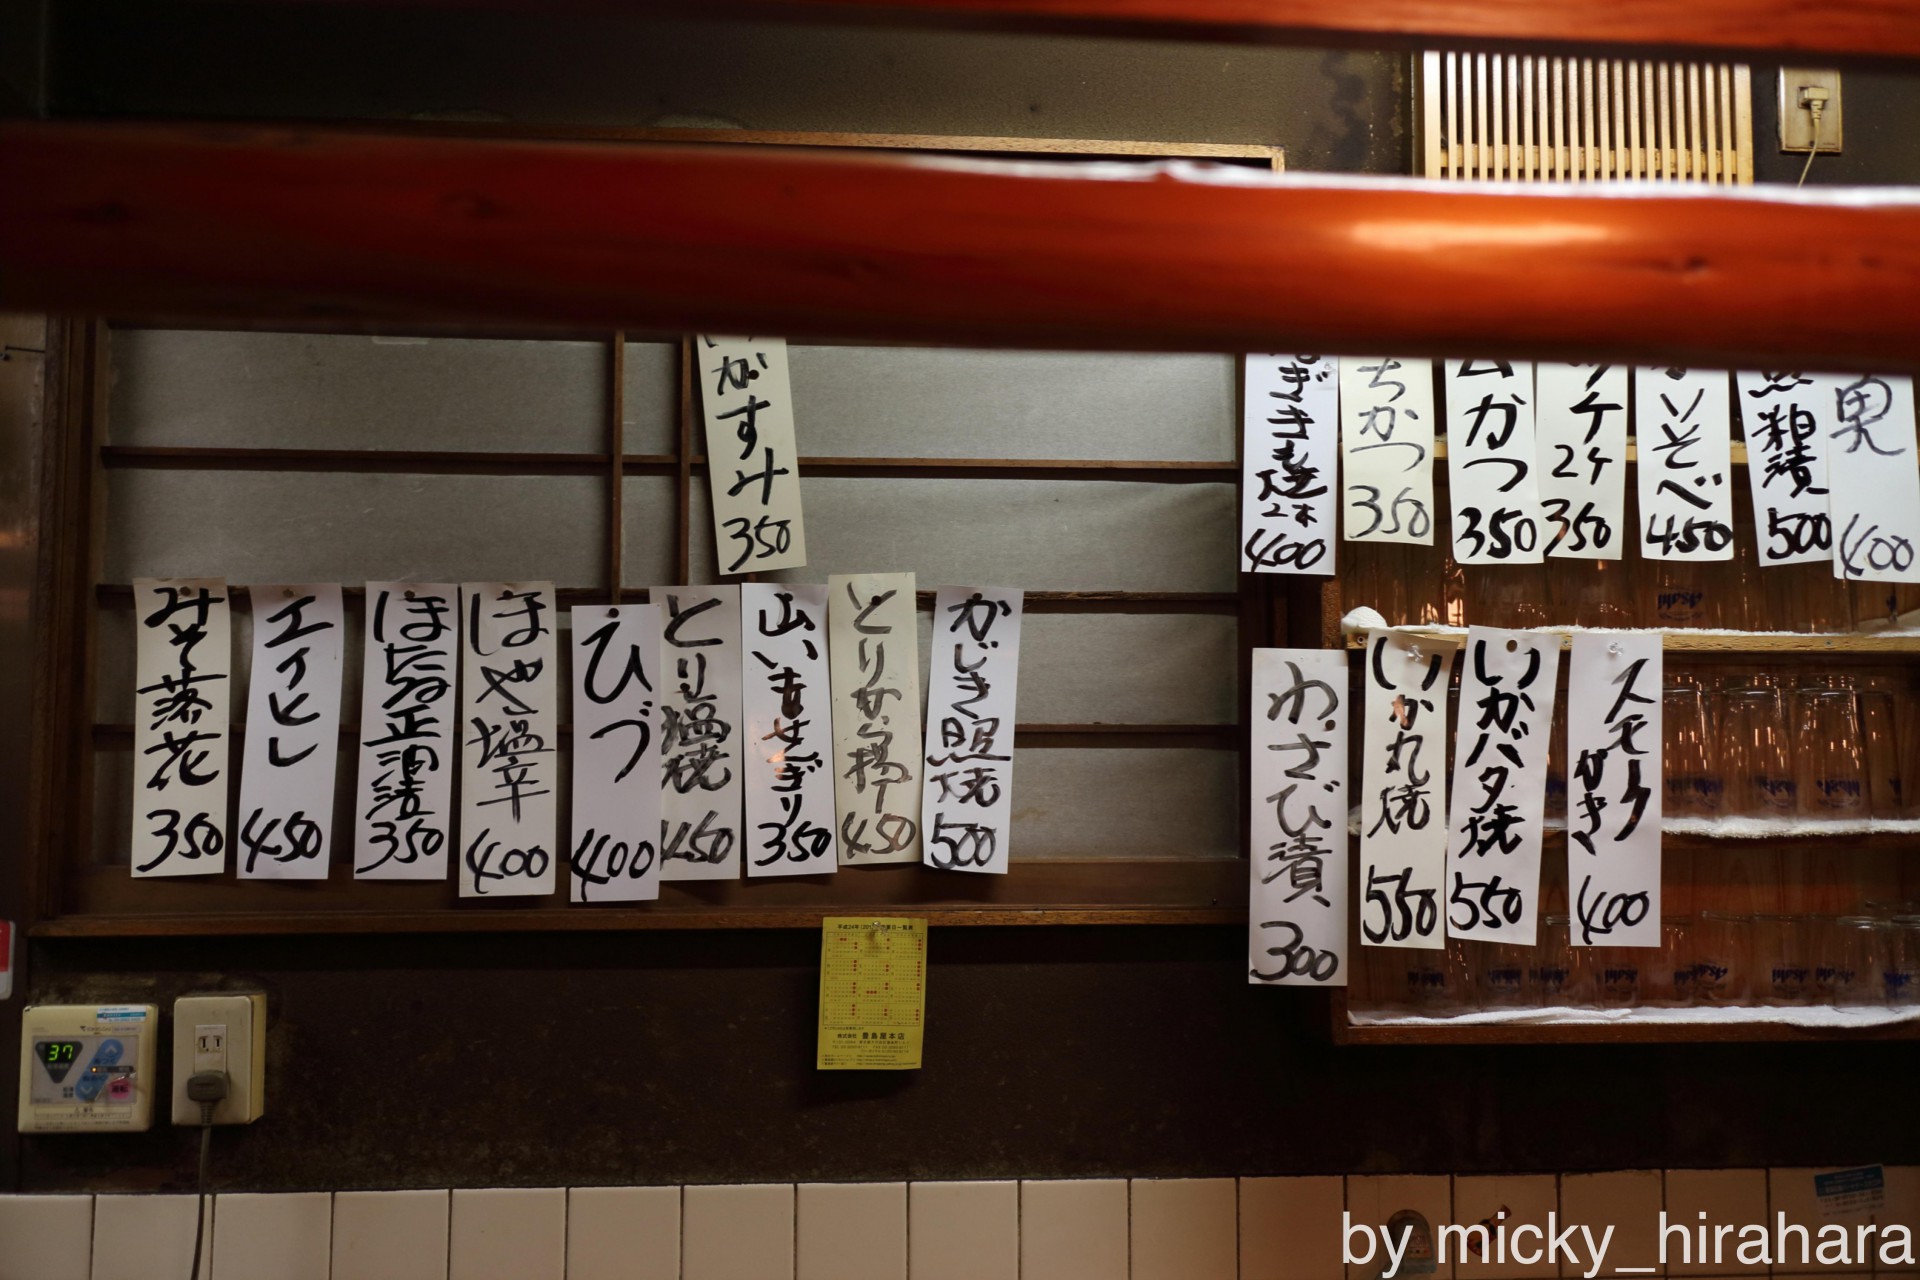 がすみ
350
ねぎきも焼
2本
400
ちかつ
350
ムかつ
350
24
350
そべ
450
粕漬
500
400
みそ落花
350
エイヒレ
450
ほたる正油漬
350
ほや塩辛
400
ひづ
400
とり塩焼
450
山いもせぎり
350
とりから揚げ
450
かじき照焼
500
わさび漬
300
いか丸焼
550
いかバタ焼
550
スモーク
がき
400
Asahi
37
平成24年
豊島屋本店
by micky_hirahara